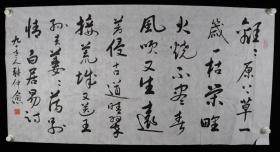 離〻原上草一
歲一枯榮野
火燒不盡春
風吹又生遠
芳侵古道晴翠
接荒城又送王
孫去萋〻滿別
情 白居易詩